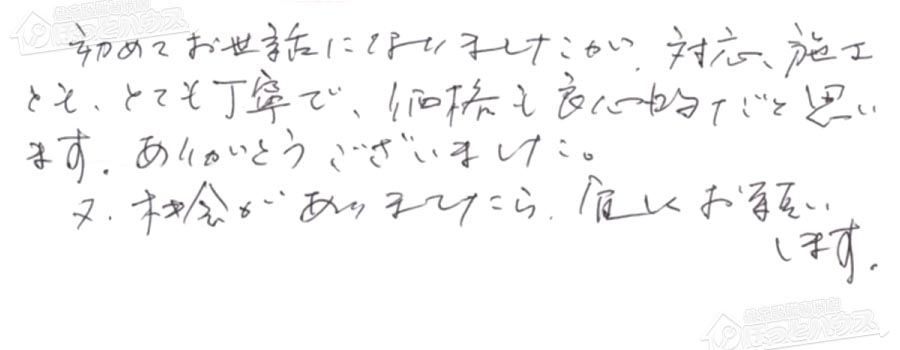 初めてお世話になりましたが、対応、施工
とも、とても丁寧で、価格も良心的だと思い
ます。ありがとうございました。
又、機会がありましたら、宜しくお願い
します。
ほっとハウス
ほっとハウス